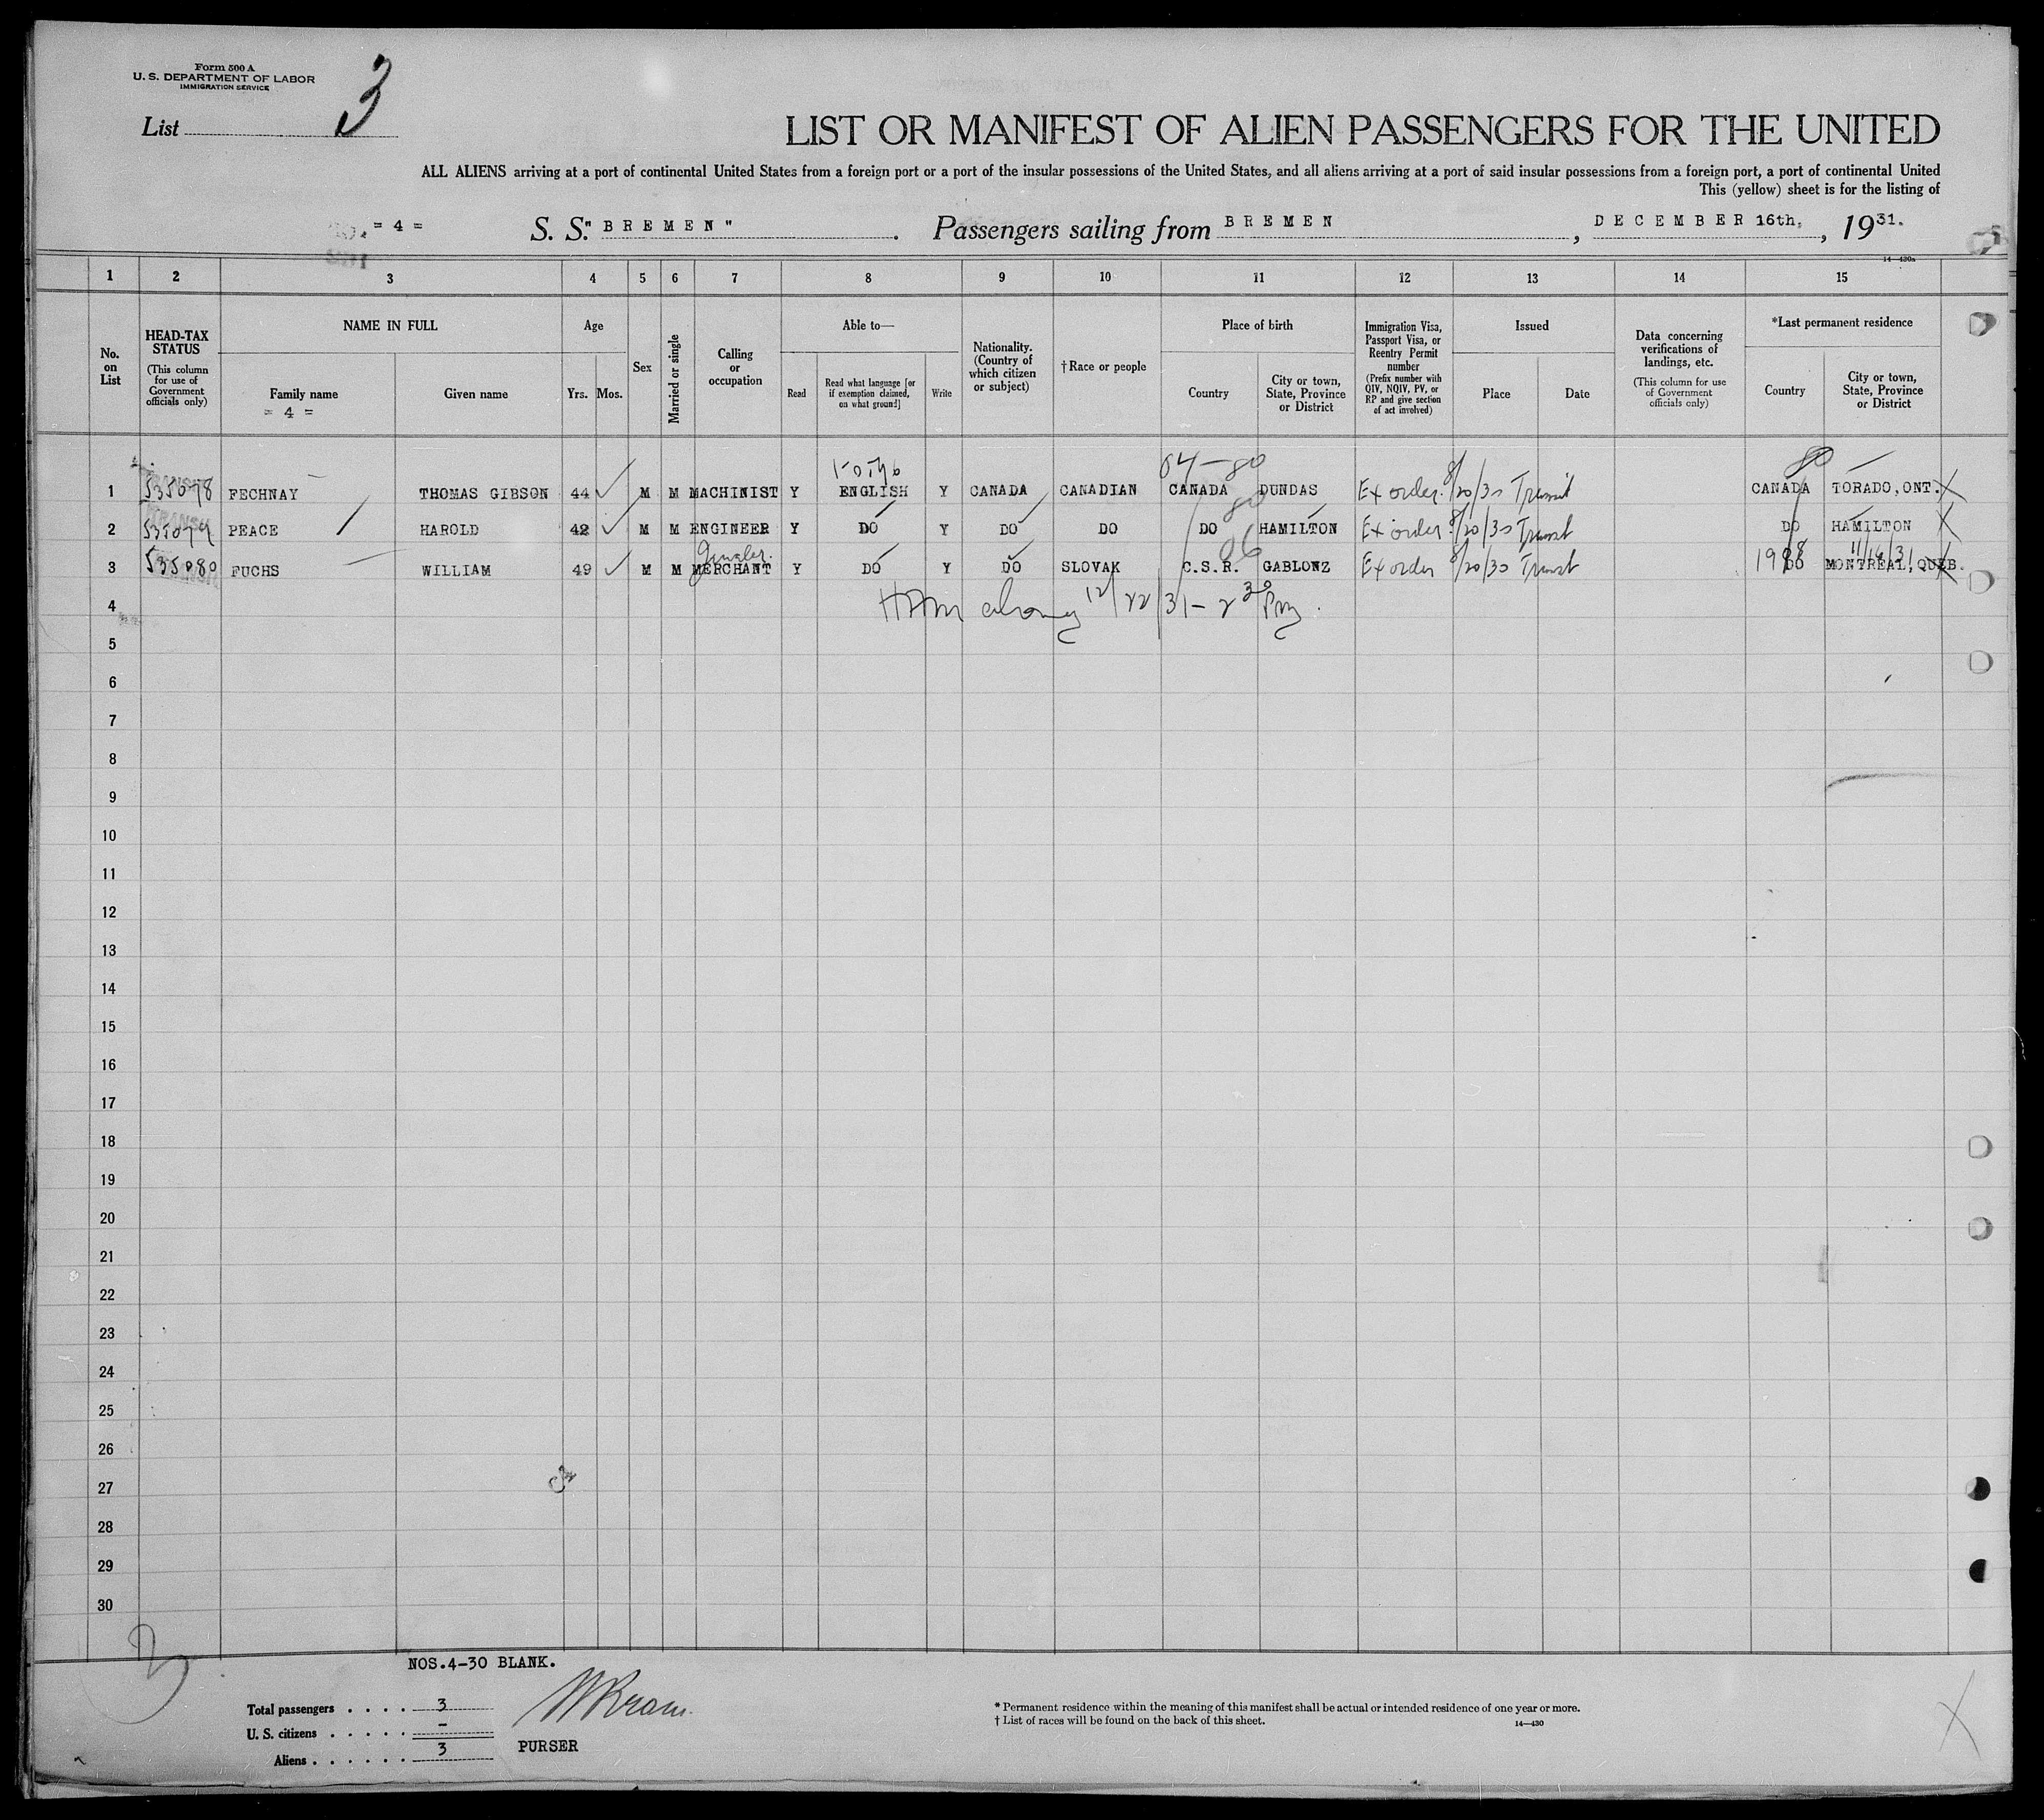 Form 500 A
U. S. DEPARTMENT OF LABOR
IMMIGRATION SERVICE
List 3
LIST OR MANIFEST OF ALIEN PASSENGERS FOR THE UNITED
ALL ALIENS arriving at a port of continental United States from a foreign port or a port of the insular possessions of the United States, and all aliens arriving at a port of said insular possessions from a foreign port, a port of continental United
This (yellow) sheet is for the listing of
= 4 = S. S. "BREMEN" . Passengers sailing from BREMEN , DECEMBER 16th, , 19 31.
14—430a
1 2 3 4 5 6 7 8 9 10 11 12 13 14 15
No. on List
HEAD-TAX STATUS
(This column for use of Government officials only)
NAME IN FULL
Family name
= 4 =
Given name
Age
Yrs. Mos.
Sex
Married or single
Calling or occupation
Able to—
Read
Read what language [or if exemption claimed, on what ground]
Write
Nationality. (Country of which citizen or subject)
† Race or people
Place of birth
Country
City or town, State, Province or District
Immigration Visa, Passport Visa, or Reentry Permit number
(Prefix number with QIV, NQIV, PV, or RP and give section of act involved)
Issued
Place
Date
Data concerning verifications of landings, etc.
(This column for use of Government officials only)
*Last permanent residence
Country
City or town, State, Province or District
64-80 80
1 535078 FECHNAY THOMAS GIBSON 44 M M MACHINIST Y ENGLISH Y CANADA CANADIAN CANADA DUNDAS Ex order 8/20/30 Transit CANADA TORADO, ONT. X
80
2 535079 PEACE HAROLD 42 M M ENGINEER Y DO Y DO DO DO HAMILTON Ex order 8/20/30 Transit DO HAMILTON X
06 11/16/31
3 535080 FUCHS WILLIAM 49 M M MERCHANT Y DO Y DO SLOVAK C.S.R. GABLONZ Ex order 8/20/30 Transit DO MONTREAL, QUEB. X
4 12/22/31 - 2 30 PM
5
6
7
8
9
10
11
12
13
14
15
16
17
18
19
20
21
22
23
24
25
26
27
28
29
30
3
NOS.4-30 BLANK.
Total passengers . . . . 3
U. S. citizens . . . . . –
Aliens . . . . . . 3
PURSER
* Permanent residence within the meaning of this manifest shall be actual or intended residence of one year or more.
† List of races will be found on the back of this sheet.
14—430
X